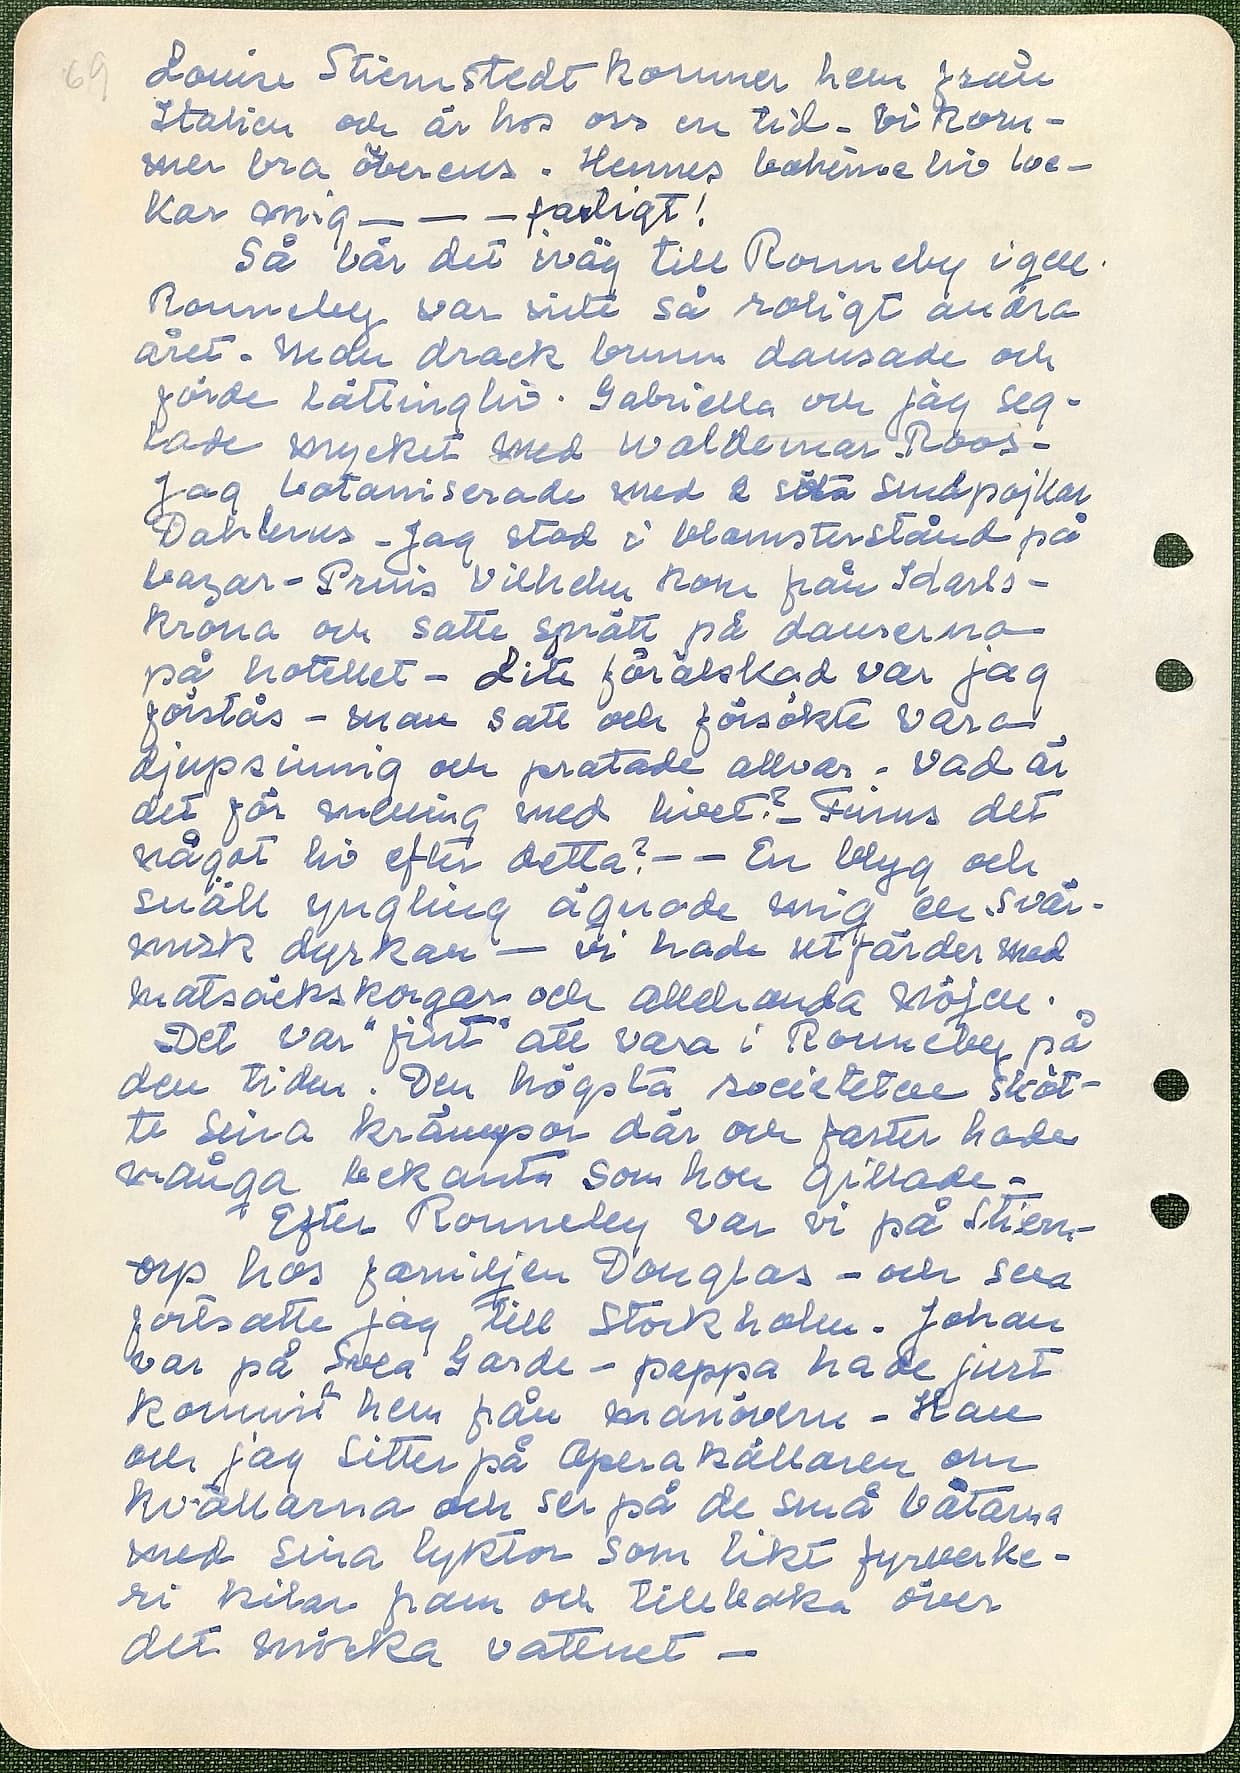 69
Louise Stiernstedt kommer hem från
Italien och är hos oss en tid - Vi kom-
mer bra överens. Hennes bohème liv loc-
kar mig - - - farligt!
Så bär det iväg till Ronneby igen.
Ronneby var inte så roligt andra
året - Man drack brunn dansade och
förde lättingliv. Gabriella och jag seg-
lade mycket med Waldemar Roos -
Jag botaniserade med 2 söta småpojkar
Dahlerus - Jag stod i blomsterstånd på
bazar - Prins Vilhelm kom från Karls-
krona och satte sprätt på danserna
på hotellet - Lite förälskad var jag
förstås - man satt och försökte vara
djupsinnig och pratade allvar - Vad är
det för mening med livet? - Finns det
något liv efter detta? - - En blyg och
snäll yngling ägnade mig en svär-
misk dyrkan - vi hade utfärder med
matsäckskorgar och allehanda nöjen.
Det var "fint" att vara i Ronneby på
den tiden. Den högsta societeten sköt-
te sina krämpor där och faster hade
många bekanta som hon gillade -
Efter Ronneby var vi på Stiern-
orp hos familjen Douglas - och sen
fortsatte jag till Stockholm - Johan
var på Svea Garde - pappa hade just
kommit hem från manövern - Han
och jag sitter på Operakällaren om
kvällarna och ser på de små båtarna
med sina lyktor som likt fyrverke-
ri kilar fram och tillbaka över
det mörka vattnet -